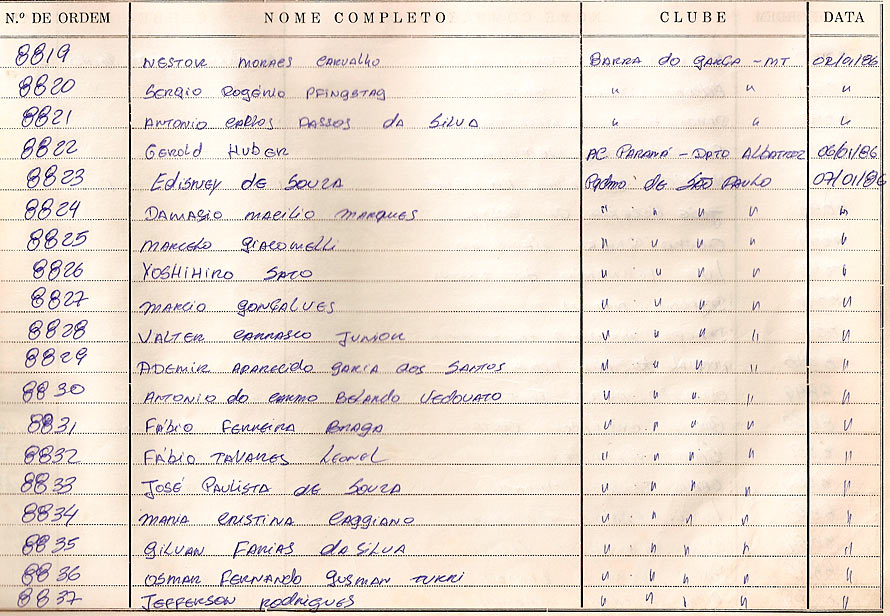 N.º DE ORDEM NOME COMPLETO CLUBE DATA
8819 NESTOR MORAES CARVALHO BARRA do GARÇA - MT 02/01/86
8820 SERGIO ROGÉRIO PFINGSTAG " " "
8821 ANTONIO CARLOS PASSOS da SILVA " " "
8822 GEROLD HUBER AC PARANÁ - DPTO ALBATROZ 06/01/86
8823 EDISNEY de SOUZA de SÃO PAULO 07/01/86
8824 DAMASIO MACILIO MARQUES " " " " "
8825 MARCELO GIACOMELLI " " " " "
8826 YOSHIHIRO SATO " " " " "
8827 MARCIO GONÇALVES " " " " "
8828 VALTER CARRASCO JUNIOR " " " " "
8829 ADEMIR APARECIDO GARCIA dos SANTOS " " " " "
8830 ANTONIO do CARMO BELARDO VEDOVATO " " " " "
8831 FÁBIO FERREIRA BRAGA " " " " "
8832 FÁBIO TAVARES LEONEL " " " " "
8833 JOSÉ PAULISTA de SOUZA " " " " "
8834 MARIA CRISTINA CAGGIANO " " " " "
8835 GILVAN FARIAS da SILVA " " " " "
8836 OSMAR FERNANDO GUSMAN TURRI " " " " "
8837 JEFFERSON RODRIGUES " " " " "